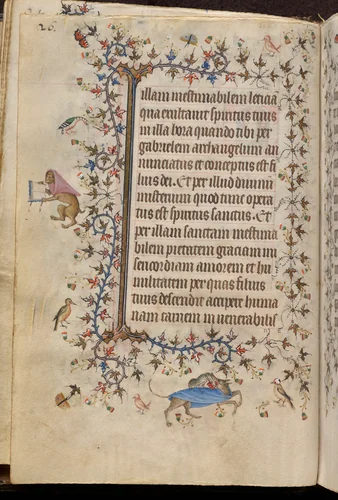 26.
illam inestimabilem leticia
qua exultauit spiritus tuus
in illa hora quando tibi per
gabrielem archangelum an
nunciatus et conceptus est fi
lius dei. Et per illud diuinu
misterium quod tunc opera
tus est spiritus sanctus. Et
per illam sanctam inestima
bilem pietatem graciam mi
sericordiam amorem et hu
militatem per quas filius
tuus descendit accipere huma
nam carnem in venerabilis